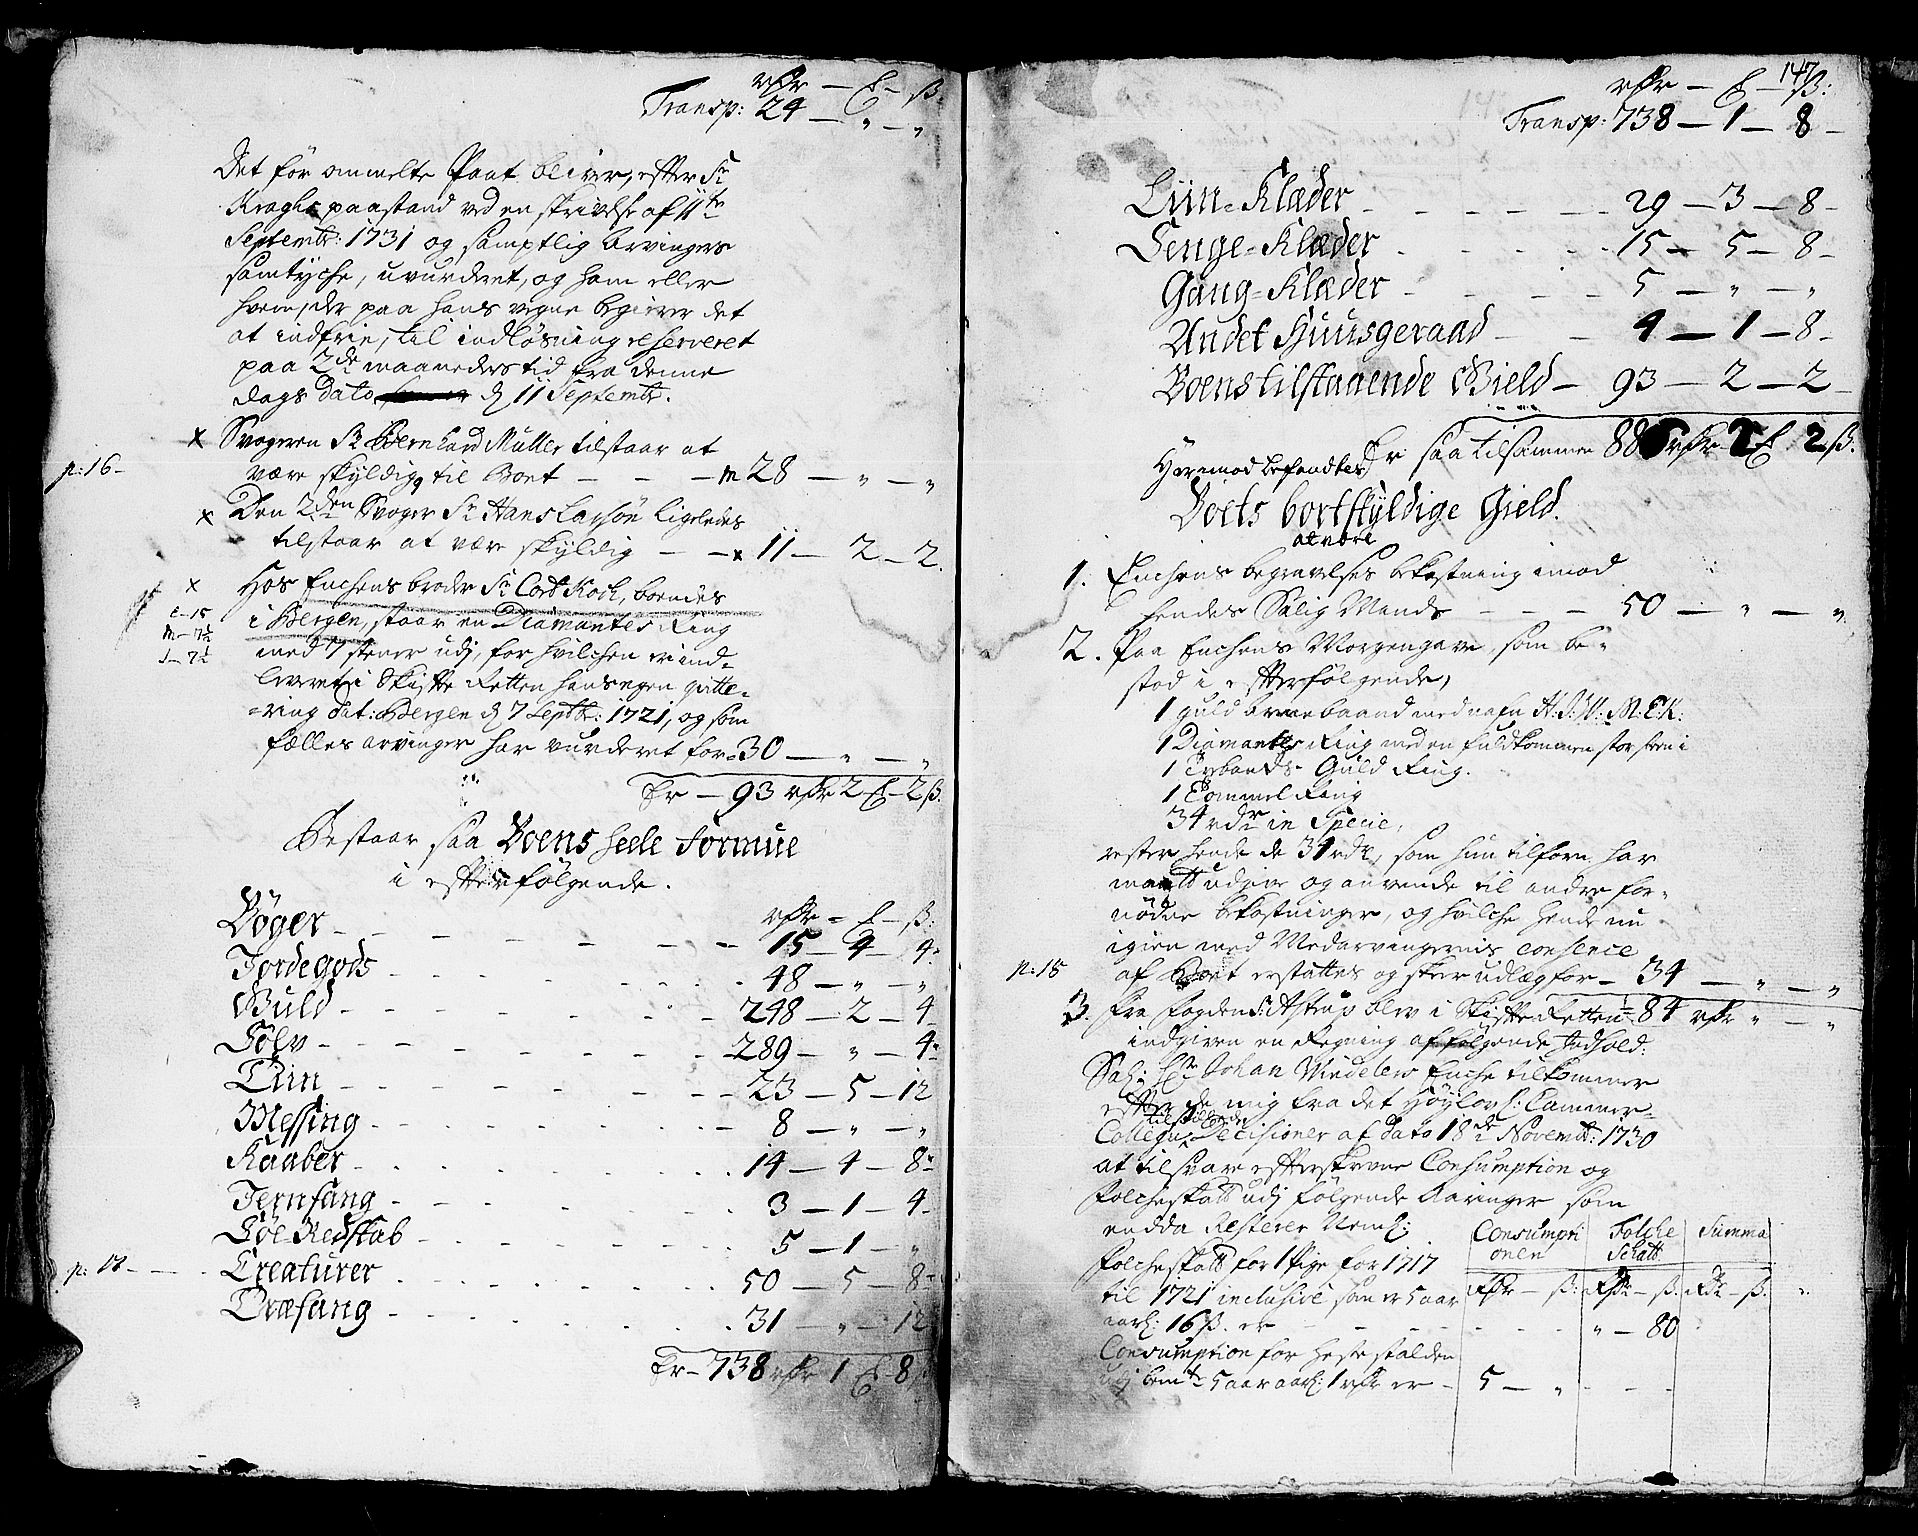 rdlr — ℔ — ß:
Transp: 24 — „ — „
Det før ommelte Pant bliver, efter Sr
Kraghs paastand ved en skrivelse af 11te
Septembr: 1731 og samptlig Arvingers
samtyche, uvurderet, og ham eller
hvem, der paa hans vegne begierer det
at indfrie, til indløsning reserveret
paa 2de maaneders tid fra denne
dags dato d 11 Septembr.
x Svogeren Sr Bernhard Müller tilstaar at
p: 16 –
være skyldig til Boet — — — 28 — „ — „
x Den 2den Svoger Sr Hans Lassøn ligeledes
tilstaar at være skyldig — — x 11 — 2 — 2.
x Hos Enchens broder Sr Cort Koch, boendes
E – 15
i Bergen, staar en Diamantes Ring
M – 7½
med 7 stener udj, for hvilchen er ind-
J – 7½
leveret i Skifte Retten hans egen qvitte-
=ring dat: Bergen d 7 Septbr: 1721, og som
fælles arvinger har vurderet for – 30 — „ — „
Er — 93 rdlr 2 ℔ – 2 ß.
Bestaar saa Boens heele Formue
i efterfølgende.
rdlr – ℔ – ß:
Bøger — — — — 15 — 4 — 4
Jordegods — — — 48 — „ — „
Guld — — — 248 — 2 — 4
Sølv — — — 289 — „ — 4
Tin — — — 23 — 5 — 12
Messing — — — 8 — „ — „
Kaaber — — — 14 — 4 — 8
Jernfang — — — 3 — 1 — 4
Bøe-Redskab — — — 5 — 1 — „
p: 17 – – – Creaturer — — — 50 — 5 — 8
Træfang — — — 31 — „ — 12
Er – 738 rdlr 1 ℔ – 8 ß
147
rdlr — ℔ — ß:
Transp: 738 — 1 — 8 –
Liin-Klæder — — — 29 — 3 — 8 –
Senge-Klæder — — — 15 — 5 — 8 –
Gang-Klæder — — — 5 — „ — „
Andet Huusgeraad — — 4 — 1 — 8 –
Boens tilstaaende Gield — 93 — 2 — 2
Er saa tilsammen 886 rdlr 2 ℔ 2 ß.
Herimod befandtes
Boets bortskyldige Gield.
at være
1. Enchens begravelses bekostning imod
hendes Salig Mands — — — 50 — „ — „
2. Paa Enchens Morgengave, som be-
stod i efterfølgende,
1 guld Armebaand med nafn H.J.W: M.E.K:
1 Diamantes Ring med en fuldkommen stor steen i
1 Guld Ring.
1 Ring
34 rdr in Specie,
rester hende de 34 rdr, som hun tilforn har
maatt udgive og anvende til andre for-
nødne bekostninger, og hvilche hende nu
igien med Medarvingernis consence
p: 18 af Boet erstattes og skeer udlæg for – 34 — „ — „
3. Fra Fogden Sr: Astrup blev i Skifte Retten – 84 rdlr „ — „
indgiven en Regning af følgende Indhold:
Sal: Hr Johan Windelers Enche tilkommer
efter de mig fra det Höylovl: Cammer-
tilstillede
Collegii Decisioner af dato 18de Novembr: 1730
at tilsvare efterskrevne Consumption og
Folcheskatt udj følgende Aaringer som
endda Resterer Neml:
Consumpti
onen
Folche
Schatt
Summa
Folcheskatt for 1 Pige for 1717
Rdlr — ß: Rdlr — ß. Rdr — ß.
til 1721 inclusive som er 5 aar
aarl: 16 ß. er — — — „ — 80
Consumption for Heste stalden
udj bemte 5 aar aarl: 1 rdlr er – 5 — „ — –